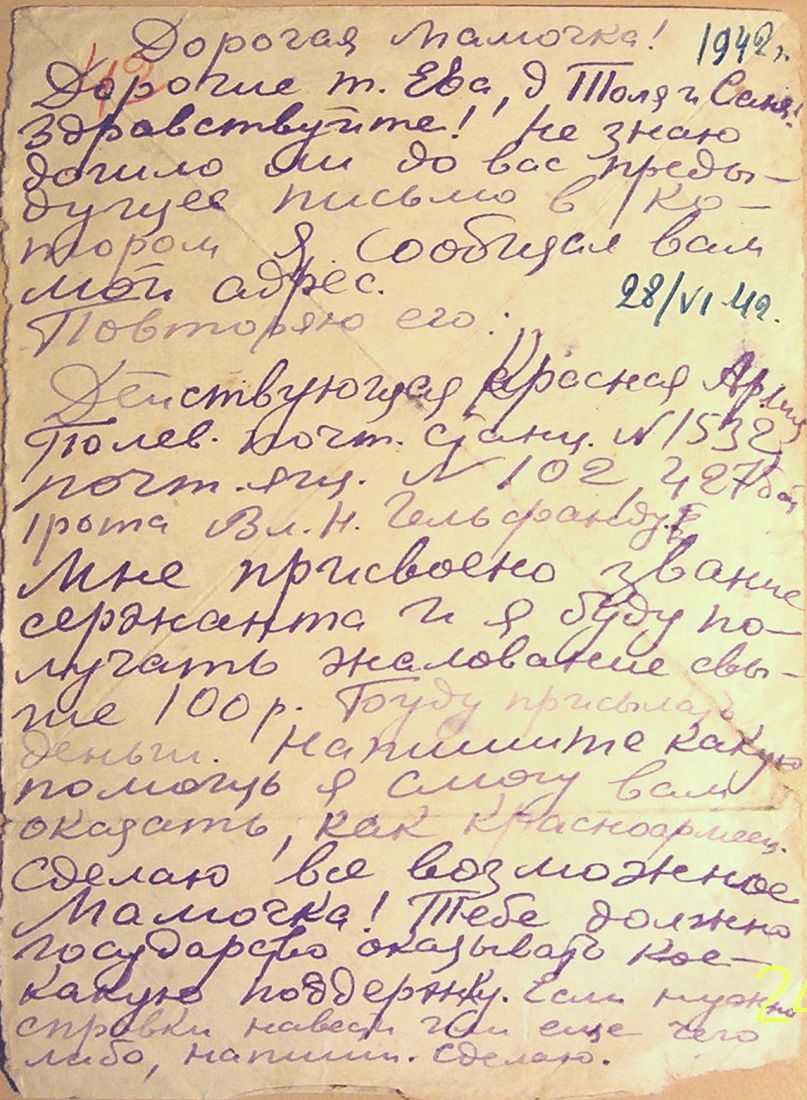 Дорогая Мамочка! 1942 г.
42
Дорогие т. Ева, д Толя и Саня!
Здравствуйте! Не знаю
дошло ли до вас преды-
дущее письмо в ко-
тором я сообщал вам
мой адрес.
28/VI 42.
Повторяю его:
Действующая Красная Армия
Полев. почт. станц. N 1532,
почт. ящ. N 102, 427 бат
1 рота Вл. Н. Гельфанду.
Мне присвоено звание
сержанта и я буду по-
лучать жалование свы-
ше 100 р. Буду присылать
деньги. Напишите какую
помощь я смогу вам
оказать, как красноармеец.
Сделаю все возможное
Мамочка! Тебе должно
государство оказывать кое-
какую поддержку. Если нужно
справки навести или еще чего
либо, напиши. Сделаю.